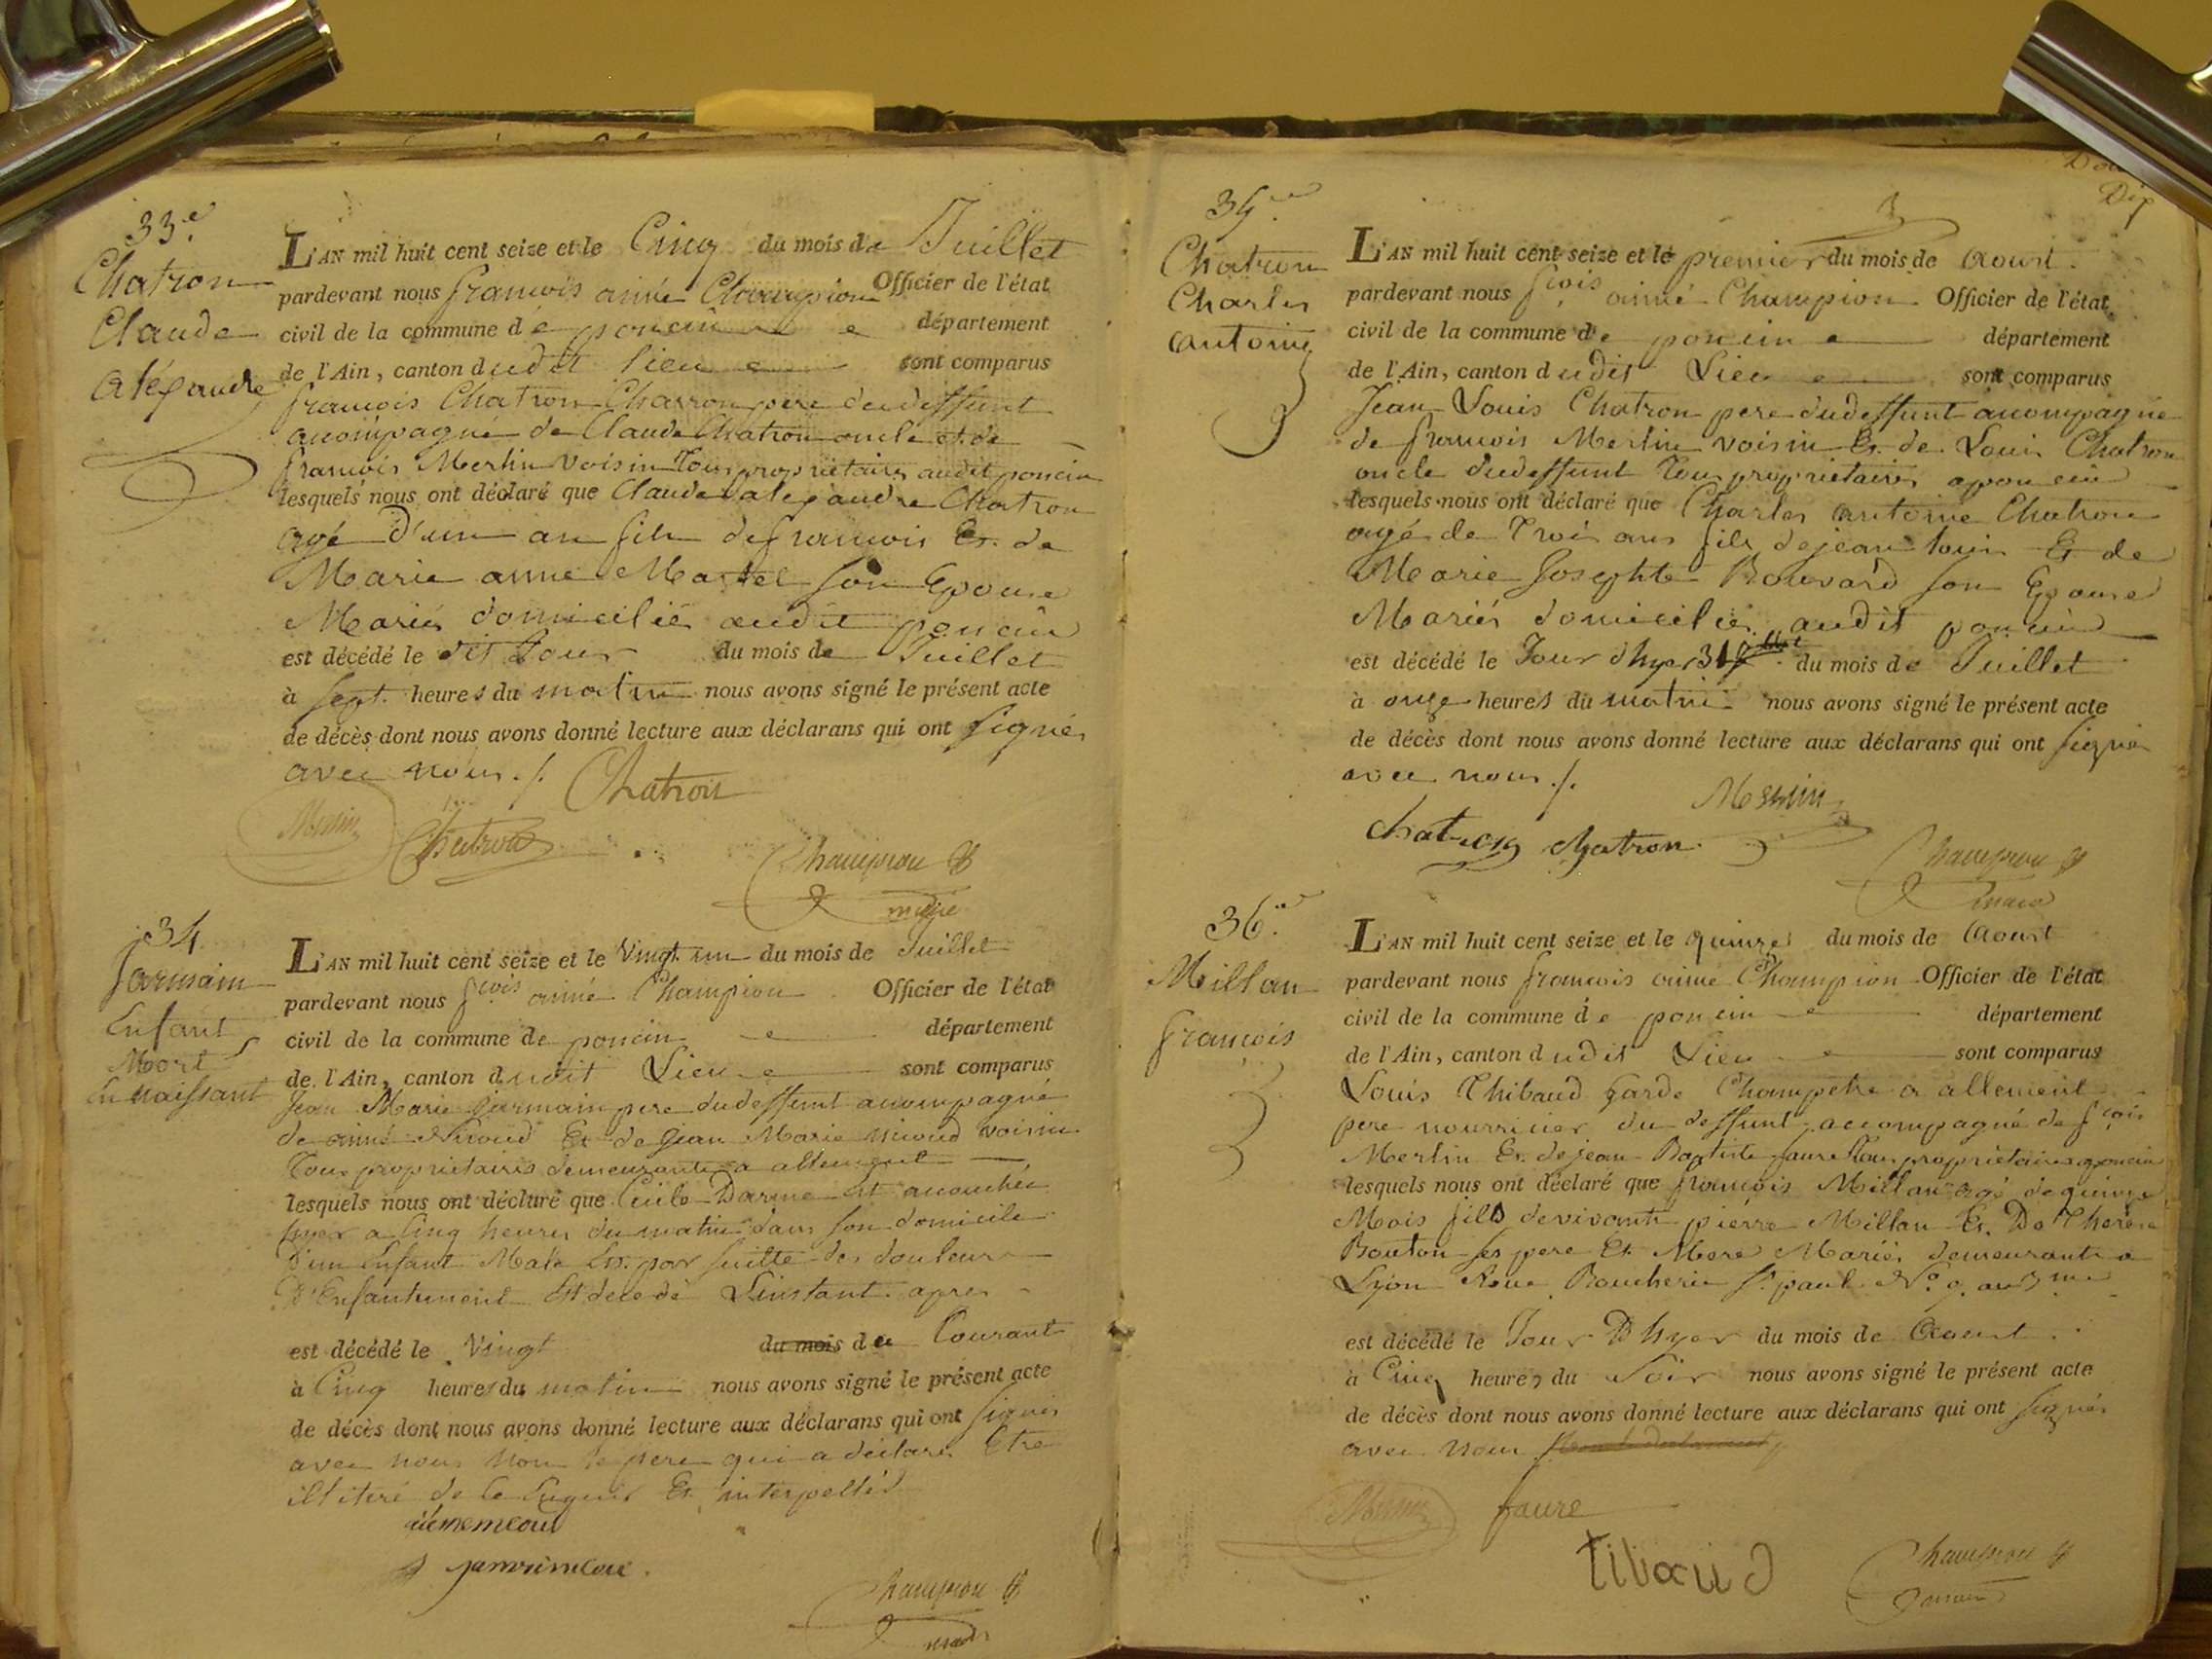 33.e
Chatron
Claude
Alégandre
L'AN mil huit cent seize et le Cinq du mois de Juillet
pardevant nous françois aimé Champion Officier de l'état
civil de la commune de poncin département
de l'Ain, canton dudit lieu sont comparus
françois Chatron Charron pere dudeffunt
acompagné de Claude Chatron oncle et de
françois Merlin voisin Tous propriétaires audit poncin
lesquels nous ont déclaré que Claude alegandre Chatron
agé d'un an fils de françois Et de
Marie anne Martel son Epouse
Mariés domiciliés audit poncin
est décédé le dit Jour du mois de Juillet
à sept heures du matin nous avons signé le présent acte
de décès dont nous avons donné lecture aux déclarans qui ont signés
avec nous ./. Chatron
Merlin Chatron
Champion
maire
34
Jarmain
Enfant
Mort
En naissant
L'AN mil huit cent seize et le Vingt un du mois de Juillet
pardevant nous fçois aimé Champion Officier de l'état
civil de la commune de poncin département
de l'Ain, canton dudit Lieu sont comparus
Jean Marie Jarmain pere dudeffunt acompagné
de aimé Nicoud Et de Jean Marie nicoud voisin
Tous propriétaires demeurants a allement
lesquels nous ont déclaré que Cécile Darme Est acouchée
hyer a Cinq heures du matin dans son domicile
d'un Enfant Male Et par suitte des douleurs
D'Enfantement Est decedé L'instant apres
est décédé le Vingt du mois du Courant
à Cinq heures du matin nous avons signé le présent acte
de décès dont nous avons donné lecture aux déclarans qui ont signés
avec nous Non le pere qui a déclaré Etre
illiteré de ce Enquis Et interpellé
Champion
35.e
Chatron
Charles
Antoine
L'AN mil huit cent seize et le premier du mois de Aoust
pardevant nous fçois aimé Champion Officier de l'état
civil de la commune de poncin département
de l'Ain, canton dudit Lieu sont comparus
Jean Louis Chatron pere dudeffunt acompagné
de françois Merlin voisin Et de Louis Chatron
oncle dudeffunt Tous propriétaires a poncin
lesquels nous ont déclaré que Charles antoine Chatron
agé de Trois ans fils de jean louis Et de
Marie Josephte Bouvard son Epouse
Mariés domiciliés audit poncin
est décédé le Jour d'hyer 31 du mois de Juillet
à onze heures du matin nous avons signé le présent acte
de décès dont nous avons donné lecture aux déclarans qui ont signés
avec nous ./. Merlin
chatron chatron
Champion
maire
36.e
Millan
françois
L'AN mil huit cent seize et le quinze du mois de Aoust
pardevant nous françois aimé Champion Officier de l'état
civil de la commune de poncin département
de l'Ain, canton dudit Lieu sont comparus
Louis Thibaud garde Champetre a allement
pere nourricier du deffunt accompagné de fçois
Merlin Et de jean Baptiste faure Tous propriétaires a poncin
lesquels nous ont déclaré que françois Millan agé de quinze
Mois fils de vivants pierre Millan Et De Therese
Bouton ses pere Et Mere Mariés demeurants a
Lyon Rue Boucherie St paul No 9 au 3me
est décédé le Jour D'hyer du mois de Aoust
à Cinq heures du Soir nous avons signé le présent acte
de décès dont nous avons donné lecture aux déclarans qui ont signés
avec nous
Merlin faure
tibaud
Champion
maire